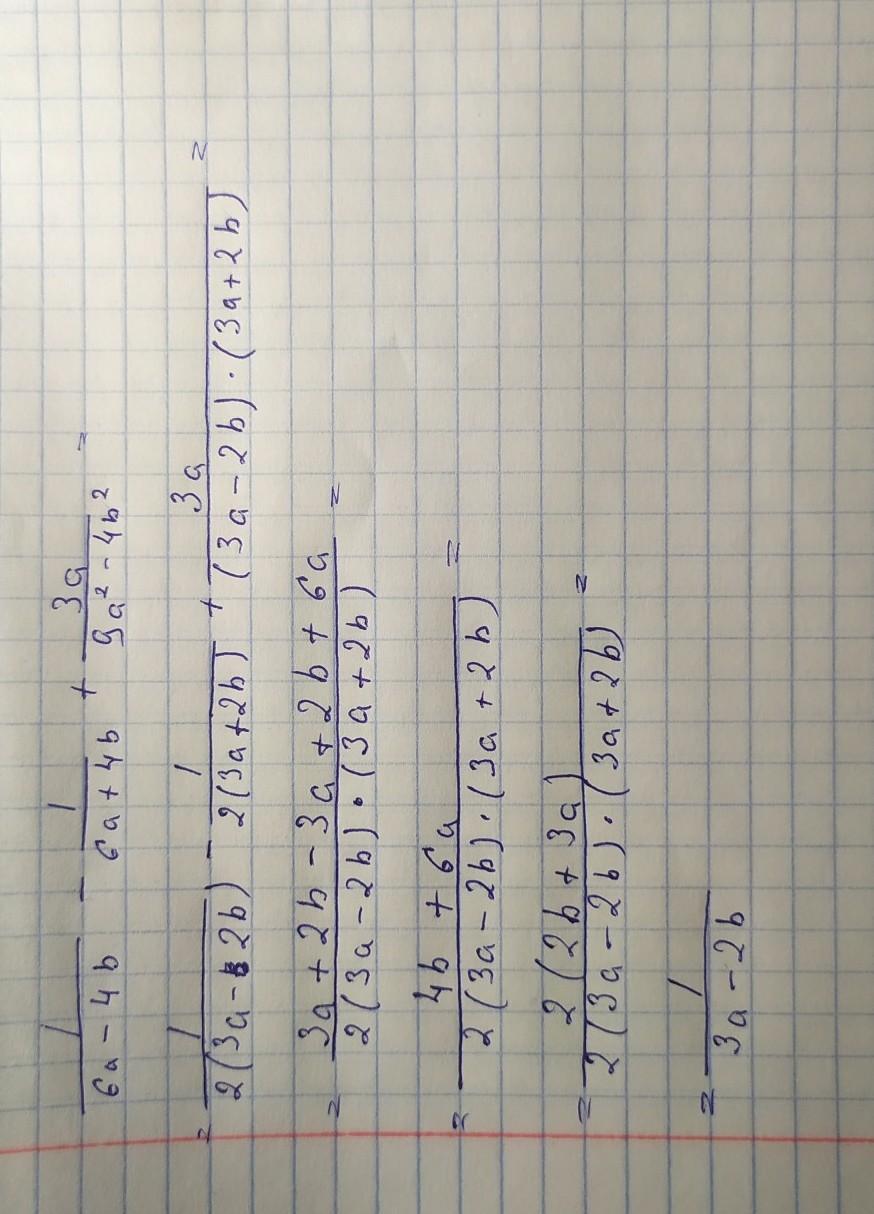 1/(6a - 4b) - 1/(6a + 4b) + 3a/(9a² - 4b²) =
= 1/(2(3a - 2b)) - 1/(2(3a + 2b)) + 3a/((3a - 2b) · (3a + 2b)) =
= (3a + 2b - 3a + 2b + 6a)/(2(3a - 2b) · (3a + 2b)) =
= (4b + 6a)/(2(3a - 2b) · (3a + 2b)) =
= 2(2b + 3a)/(2(3a - 2b) · (3a + 2b)) =
= 1/(3a - 2b)